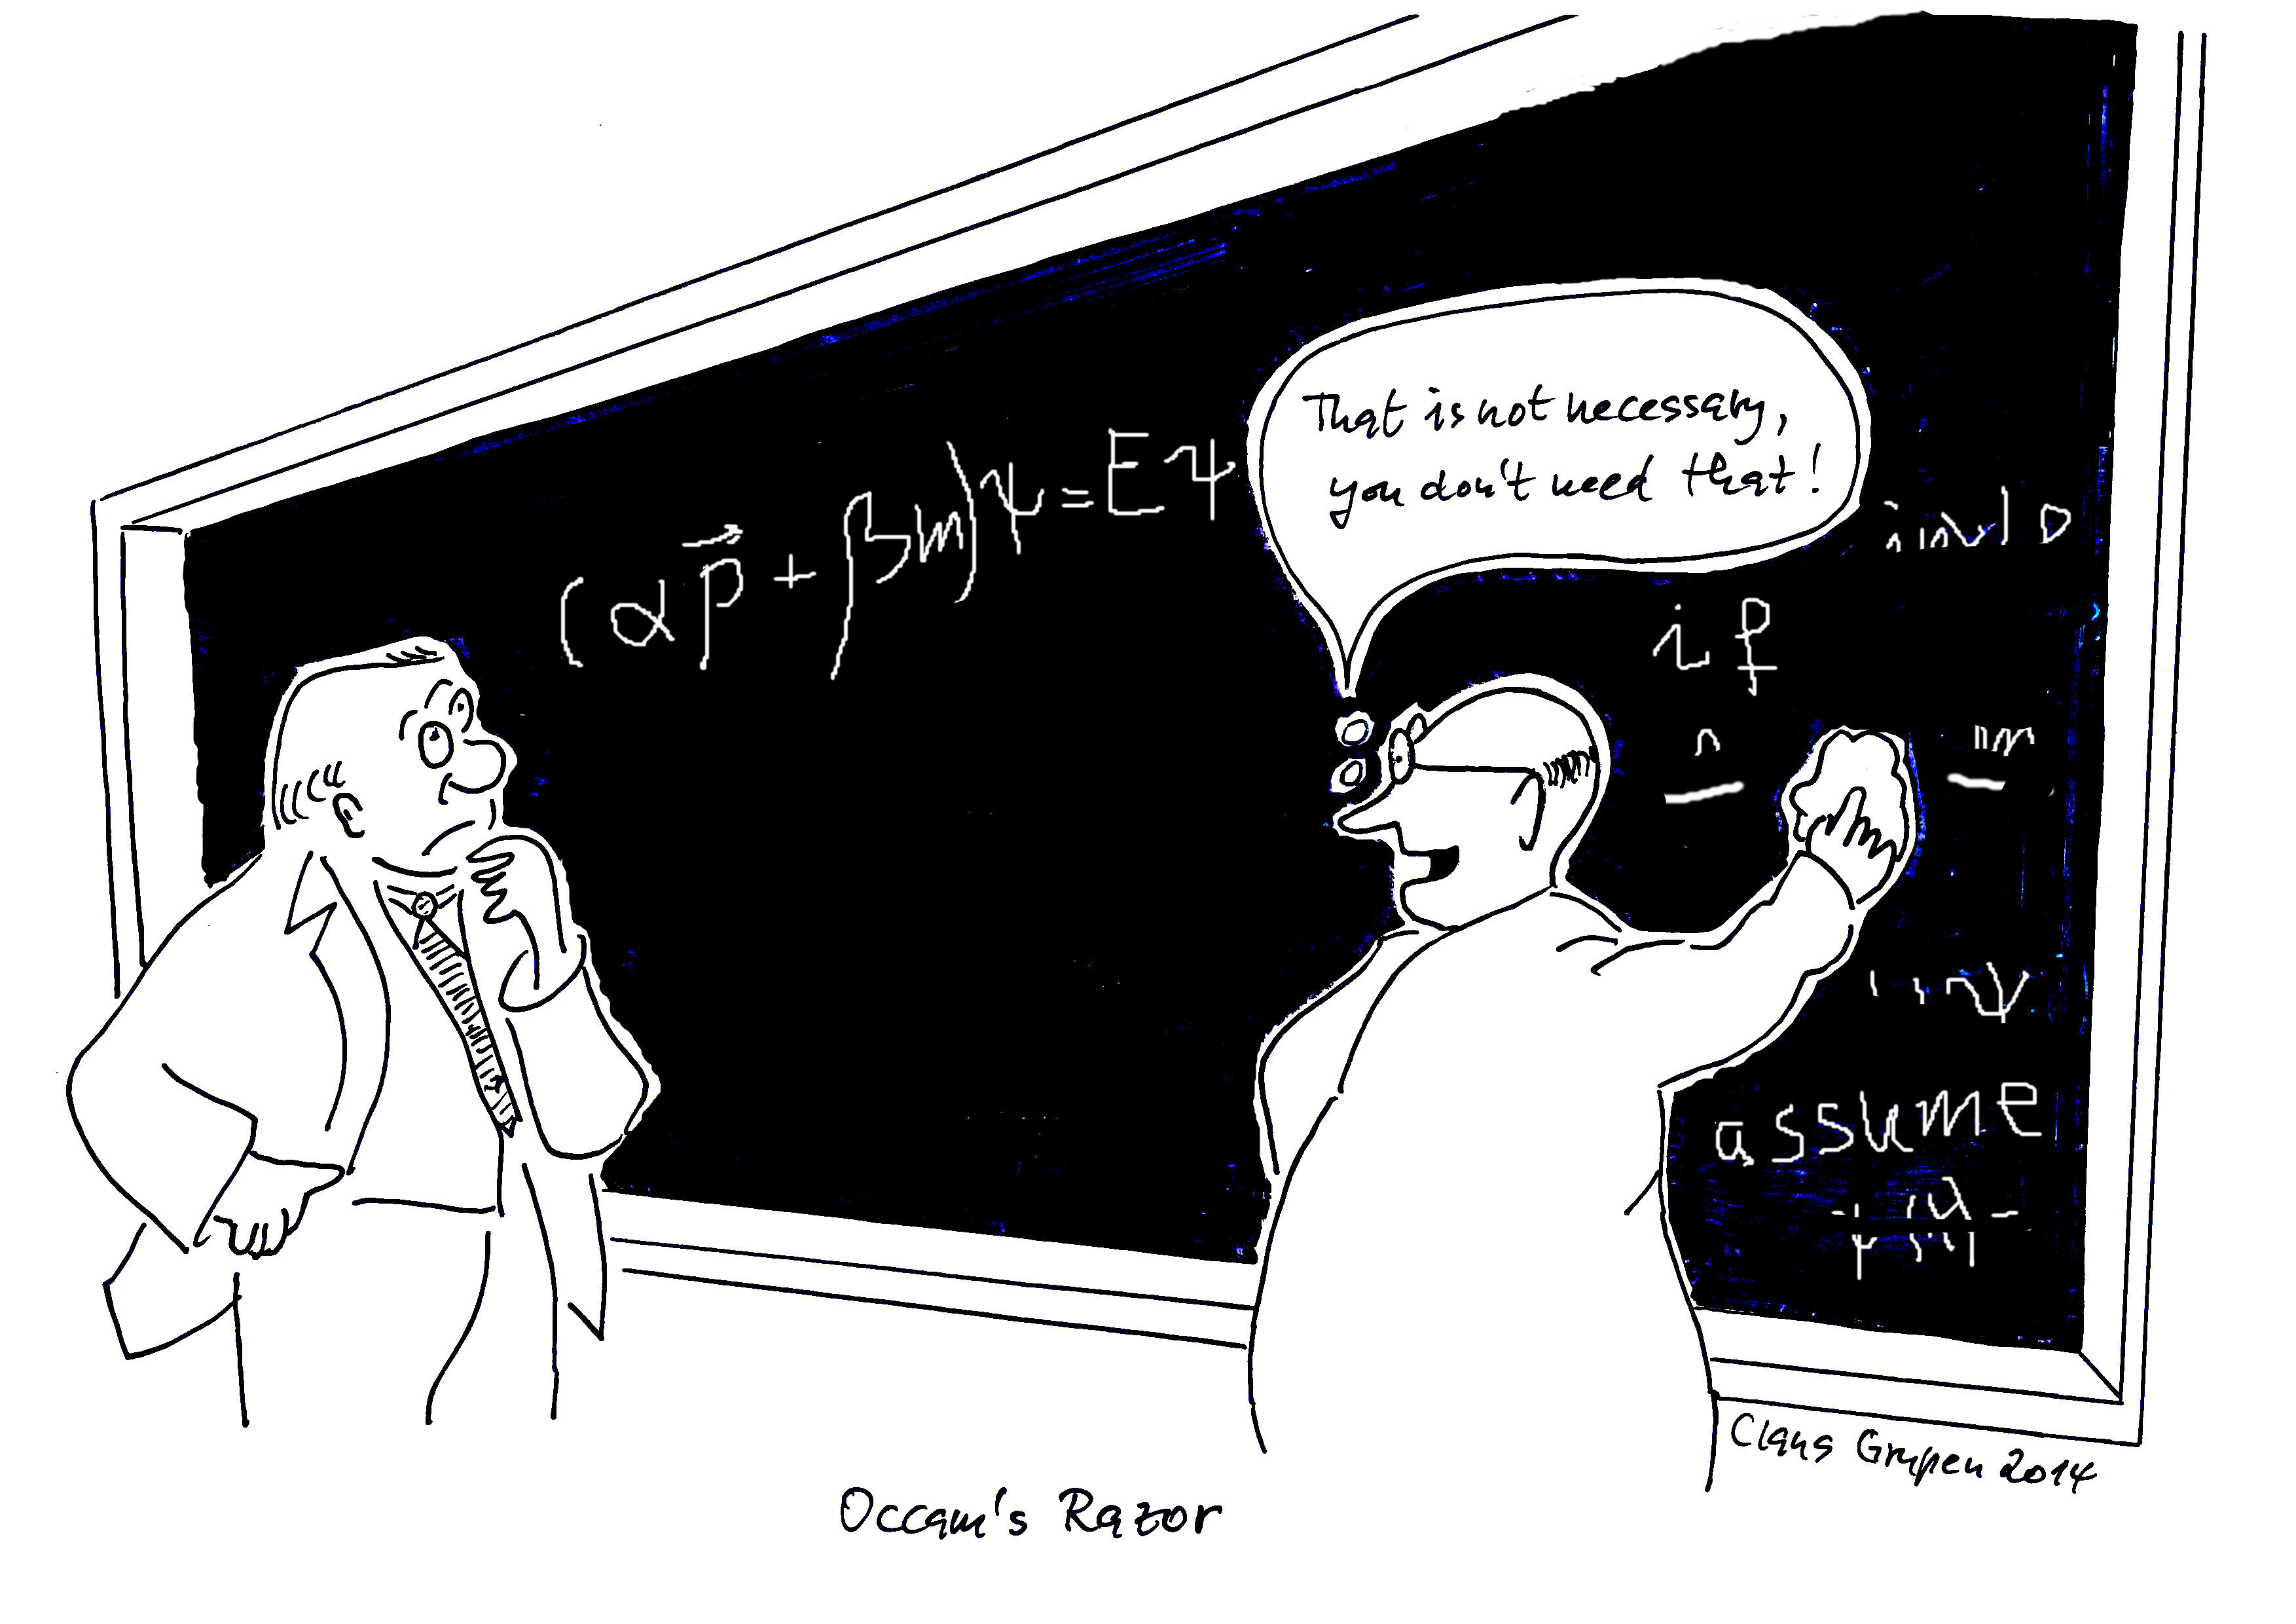 (α p⃗ + βm)ψ = Eψ
That is not necessary,
you don't need that!
if
n
assume
Claus Grupen 2014
Occam's Razor